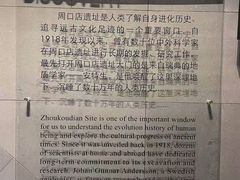 DISCOVERY
周口店遗址是人类了解自身进化历史、
追寻远古文化足迹的一个重要窗口。自
1918年发现以来，曾有数十位中外科学家
在周口店遗址进行长期的发掘、研究工作。
最先打开周口店遗址大门的是来自瑞典的地
质学家——安特生，是他唤醒了这里深埋地
下、沉睡了数十万年的人类历史。
Zhoukoudian Site is one of the important window
for us to understand the evolution history of human
being and explore the cultural progress of ancient
times. Since it was unveiled back in 1918, dozens
of scientists at home and abroad have dedicated
long-term commitment to its excavation and
research. Johan Gunnar Andersson, a Swedish